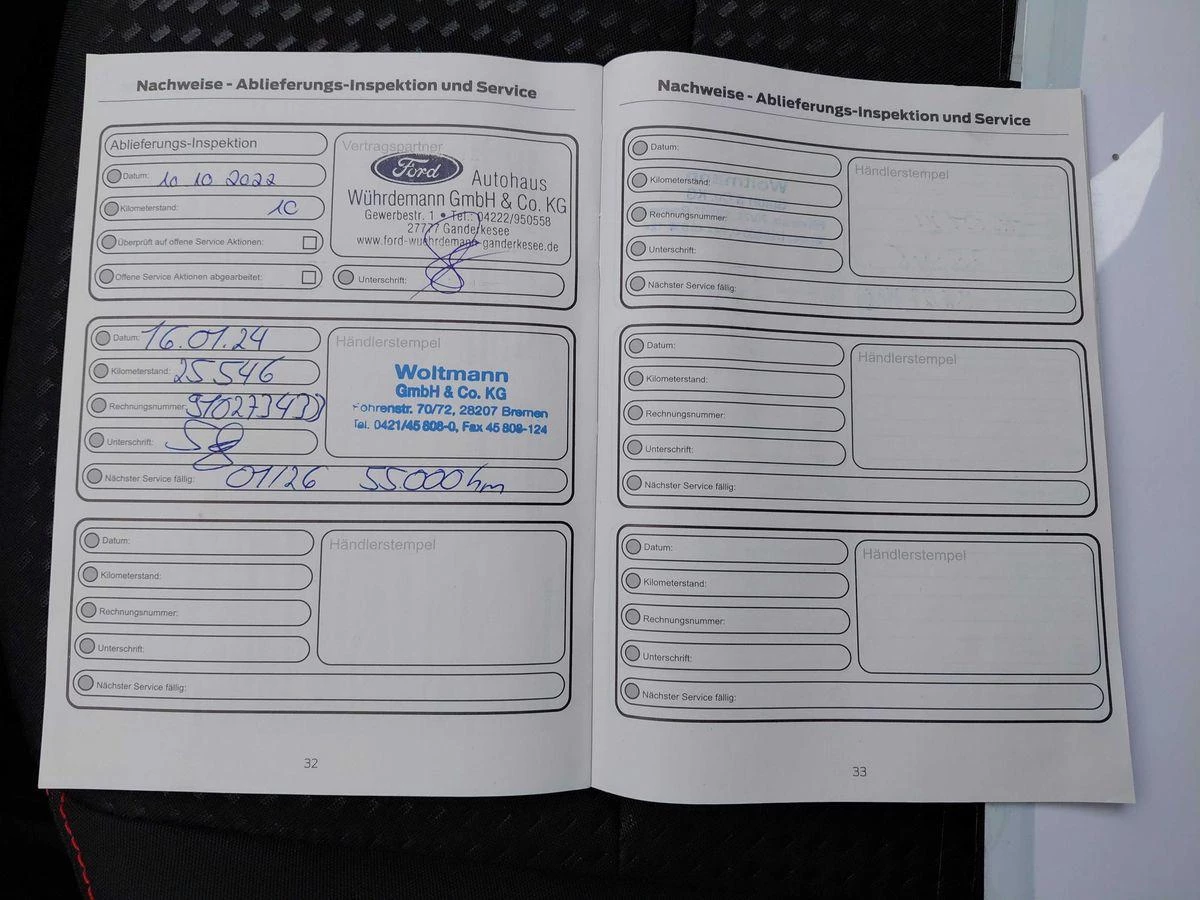 Nachweise - Ablieferungs-Inspektion und Service
Ablieferungs-Inspektion
Datum: 10 10 2022
Kilometerstand: 10
Überprüft auf offene Service Aktionen:
Offene Service Aktionen abgearbeitet:
Vertragspartner
Ford
Autohaus
Wührdemann GmbH & Co. KG
Gewerbestr. 1 • Tel.: 04222/950558
27777 Ganderkesee
www.ford-wuehrdemann-ganderkesee.de
Unterschrift:
Datum: 16.01.24
Kilometerstand: 25546
Rechnungsnummer:
Unterschrift:
Nächster Service fällig: 01/26 55.000km
Händlerstempel
Woltmann
GmbH & Co. KG
Föhrenstr. 70/72, 28207 Bremen
Tel. 0421/45 808-0, Fax 45 808-124
Datum:
Kilometerstand:
Rechnungsnummer:
Unterschrift:
Nächster Service fällig:
Händlerstempel
32
Nachweise - Ablieferungs-Inspektion und Service
Datum:
Kilometerstand:
Rechnungsnummer:
Unterschrift:
Nächster Service fällig:
Händlerstempel
Datum:
Kilometerstand:
Rechnungsnummer:
Unterschrift:
Nächster Service fällig:
Händlerstempel
Datum:
Kilometerstand:
Rechnungsnummer:
Unterschrift:
Nächster Service fällig:
Händlerstempel
33